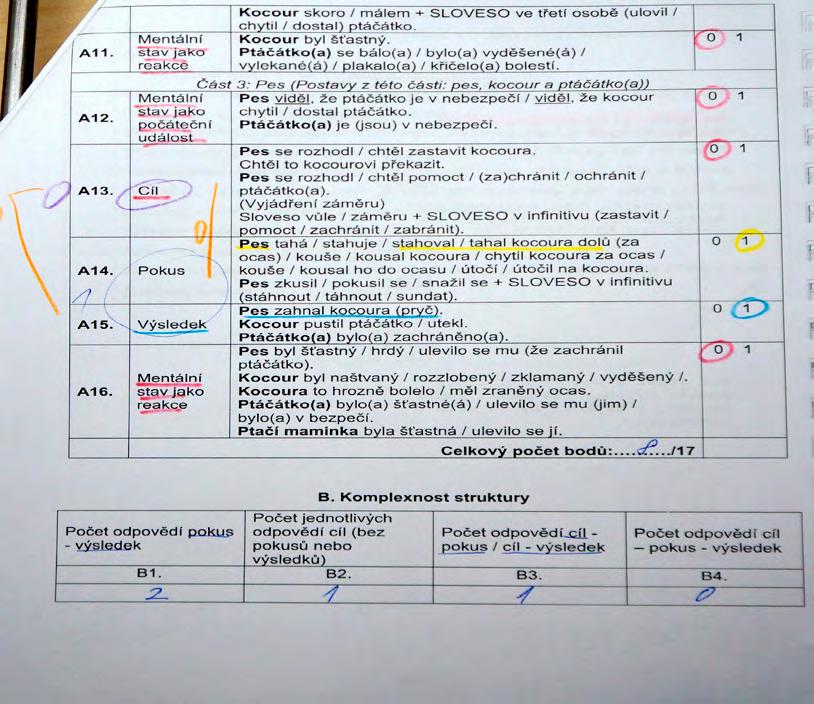 Kocour skoro / málem + SLOVESO ve třetí osobě (ulovil /
chytil / dostal) ptáčátko.
A11.
Mentální
stav jako
reakce
Kocour byl šťastný.
Ptáčátko(a) se bálo(a) / bylo(a) vyděšené(á) /
vylekané(á) / plakalo(a) / křičelo(a) bolestí.
0 1
Část 3: Pes (Postavy z této části: pes, kocour a ptáčátko(a))
A12.
Mentální
stav jako
počáteční
událost
Pes viděl, že ptáčátko je v nebezpečí / viděl, že kocour
chytil / dostal ptáčátko.
Ptáčátko(a) je (jsou) v nebezpečí.
0 1
0
A13.
Cíl
Pes se rozhodl / chtěl zastavit kocoura.
Chtěl to kocourovi překazit.
Pes se rozhodl / chtěl pomoct / (za)chránit / ochránit /
ptáčátko(a).
(Vyjádření záměru)
Sloveso vůle / záměru + SLOVESO v infinitivu (zastavit /
pomoct / zachránit / zabránit).
0 1
0
A14.
Pokus
Pes tahá / stahuje / stahoval / tahal kocoura dolů (za
ocas) / kouše / kousal kocoura / chytil kocoura za ocas /
kouše / kousal ho do ocasu / útočí / útočil na kocoura.
Pes zkusil / pokusil se / snažil se + SLOVESO v infinitivu
(stáhnout / táhnout / sundat).
0 1
1
A15.
Výsledek
Pes zahnal kocoura (pryč).
Kocour pustil ptáčátko / utekl.
Ptáčátko(a) bylo(a) zachráněno(a).
0 1
A16.
Mentální
stav jako
reakce
Pes byl šťastný / hrdý / ulevilo se mu (že zachránil
ptáčátko).
Kocour byl naštvaný / rozzlobený / zklamaný / vyděšený /.
Kocoura to hrozně bolelo / měl zraněný ocas.
Ptáčátko(a) bylo(a) šťastné(á) / ulevilo se mu (jim) /
bylo(a) v bezpečí.
Ptačí maminka byla šťastná / ulevilo se jí.
0 1
Celkový počet bodů:....8..../17
B. Komplexnost struktury
Počet odpovědí pokus
- výsledek
Počet jednotlivých
odpovědí cíl (bez
pokusů nebo
výsledků)
Počet odpovědí cíl -
pokus / cíl - výsledek
Počet odpovědí cíl
– pokus - výsledek
B1.
B2.
B3.
B4.
2
1
1
0